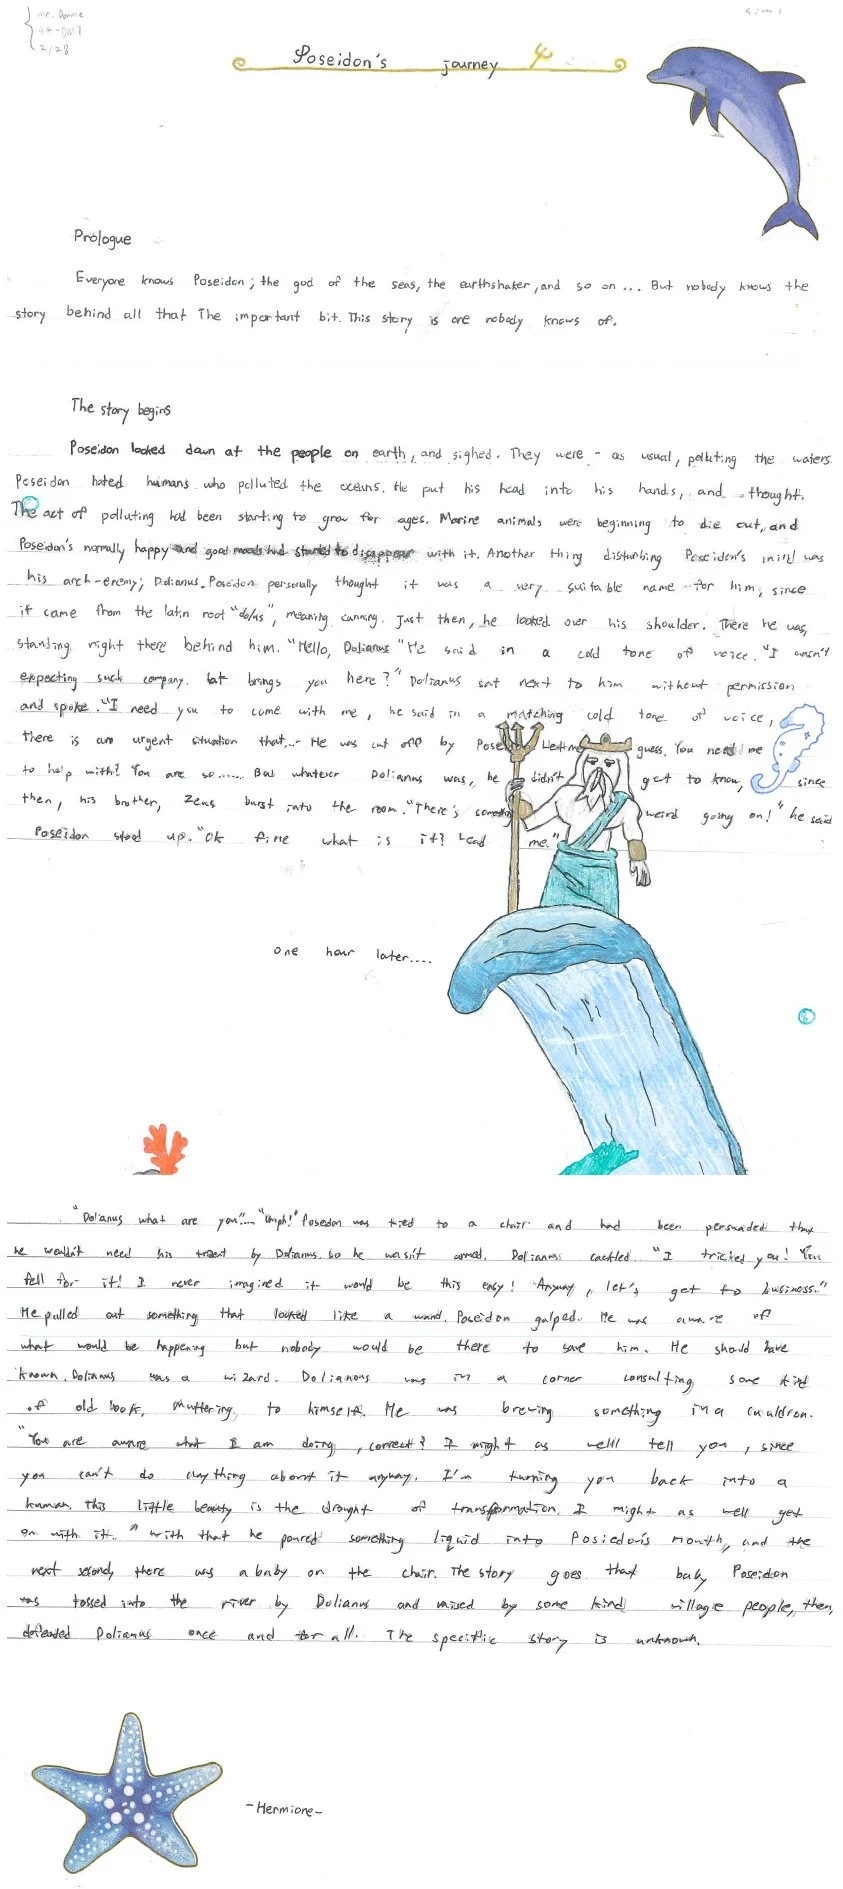 Mr. Donnie
2/28
Poseidon's journey
Prologue
Everyone knows Poseidon; the god of the seas, the earthshaker, and so on... But nobody knows the
story behind all that The important bit. This story is one nobody knows of.
The story begins
Poseidon looked down at the people on earth, and sighed. They were - as usual, polluting the waters.
Poseidon hated humans who polluted the oceans. He put his head into his hands, and thought.
The act of polluting had been starting to grow for ages. Marine animals were beginning to die out, and
Poseidon's normally happy and good moods had started to disappear with it. Another thing disturbing Poseidon's mind was
his arch-enemy; Dolianus. Poseidon personally thought it was a very suitable name for him, since
it came from the latin root "dolus", meaning cunning. Just then, he looked over his shoulder. There he was,
standing right there behind him. "Hello, Dolianus" He said in a cold tone of voice. "I wasn't
expecting such company. Wat brings you here?" Dolianus sat next to him without permission
and spoke. "I need you to come with me, he said in a matching cold tone of voice,
there is an urgent situation that... He was cut off by Poseidon Let me guess. You need me
to help with? You are so...... But whatever Dolianus was, he didn't get to know, since
then, his brother, Zeus burst into the room. "There's something weird going on!" he said
Poseidon stood up. "Ok fine what is it? Lead me."
one hour later....
"Dolianus what are you".... "Umph!" Poseidon was tied to a chair and had been persuaded that
he wouldn't need his trident by Dolianus. So he wasn't armed. Dolianus cackled. "I tricked you! You
fell for it! I never imagined it would be this easy! Anyway, let's get to business."
He pulled out something that looked like a wand. Poseidon gulped. He was aware of
what would be happening but nobody would be there to save him. He should have
known. Dolianus was a wizard. Dolianous was in a corner consulting some kind
of old book, muttering to himself. He was brewing something in a cauldron.
"You are aware what I am doing, correct? I might as welll tell you, since
you can't do anything about it anyway. I'm turning you back into a
human. This little beauty is the drought of transformation. I might as well get
on with it." With that he poured something liquid into Posiedon's mouth, and the
next second, there was a baby on the chair. The story goes that baby Poseidon
was tossed into the river by Dolianus and raised by some kind village people, then,
defeated Dolianus once and for all. The specific story is unknown.
-Hermione-